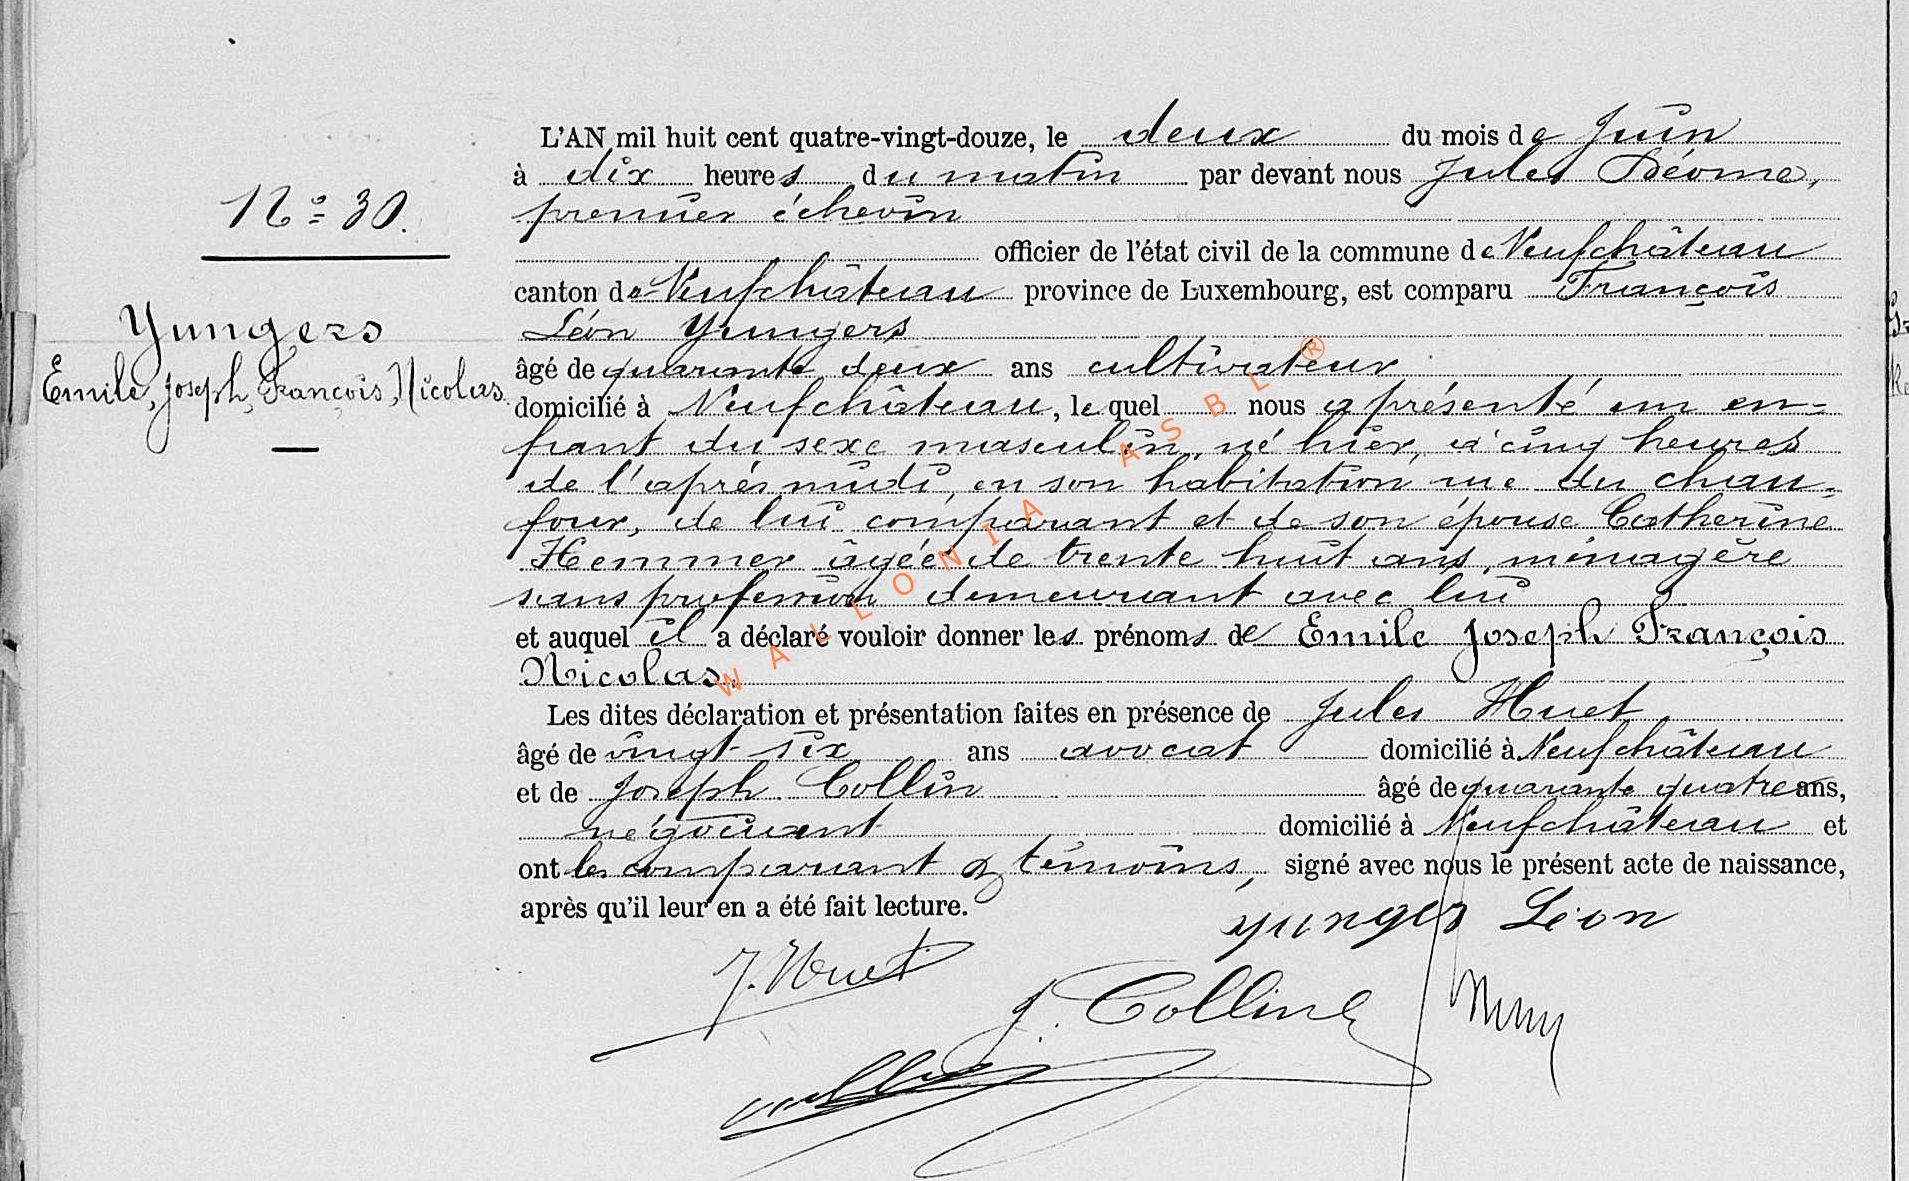 N° 30.
Yungers
Emile, Joseph, François, Nicolas.
L'AN mil huit cent quatre-vingt-douze, le deux du mois de Juin
à dix heures du matin par devant nous Jules
premier échevin
officier de l'état civil de la commune de Neufchâteau
canton de Neufchâteau province de Luxembourg, est comparu François
Léon Yungers
âgé de quarante deux ans cultivateur
domicilié à Neufchâteau, lequel nous a présenté un en=
fant du sexe masculin, né hier, à cinq heures
de l'après midi, en son habitation rue du chau=
four, de lui comparant et de son épouse Catherine
Hemmer âgée de trente huit ans, ménagère
sans profession demeurant avec lui
et auquel il a déclaré vouloir donner les prénoms de Emile Joseph François
Nicolas.
Les dites déclaration et présentation faites en présence de Jules Huet
âgé de vingt-six ans avocat domicilié à Neufchâteau
et de Joseph Collin âgé de quarante quatre ans,
négociant domicilié à Neufchâteau et
ont les comparant & témoins, signé avec nous le présent acte de naissance,
après qu'il leur en a été fait lecture.
yungers Léon
J. Huet
J. Collin
WALLONIA ASBL ®